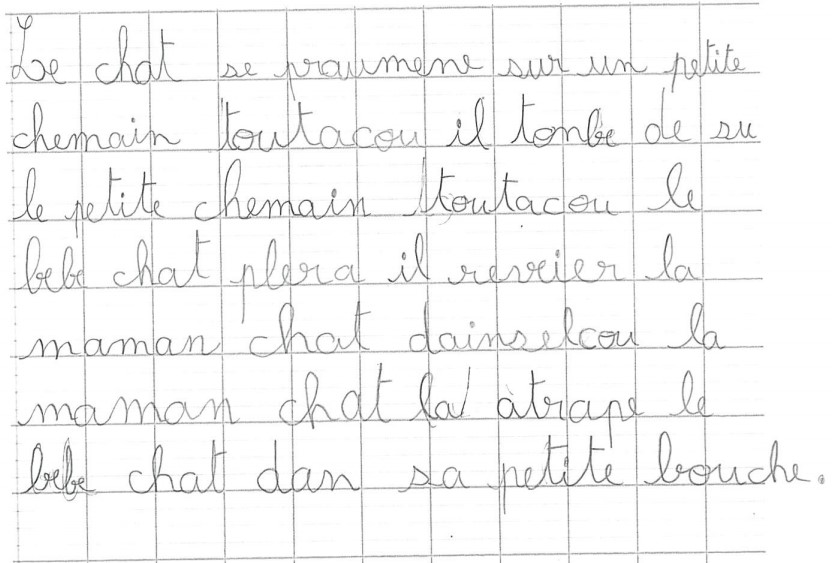 Le chat se praumene sur un petite
chemain toutacou il tombe de su
le petite chemain toutacou le
bebe chat plera il reveier la
maman chat dainselcou la
maman chat la atrape le
bebe chat dan sa petite bouche.